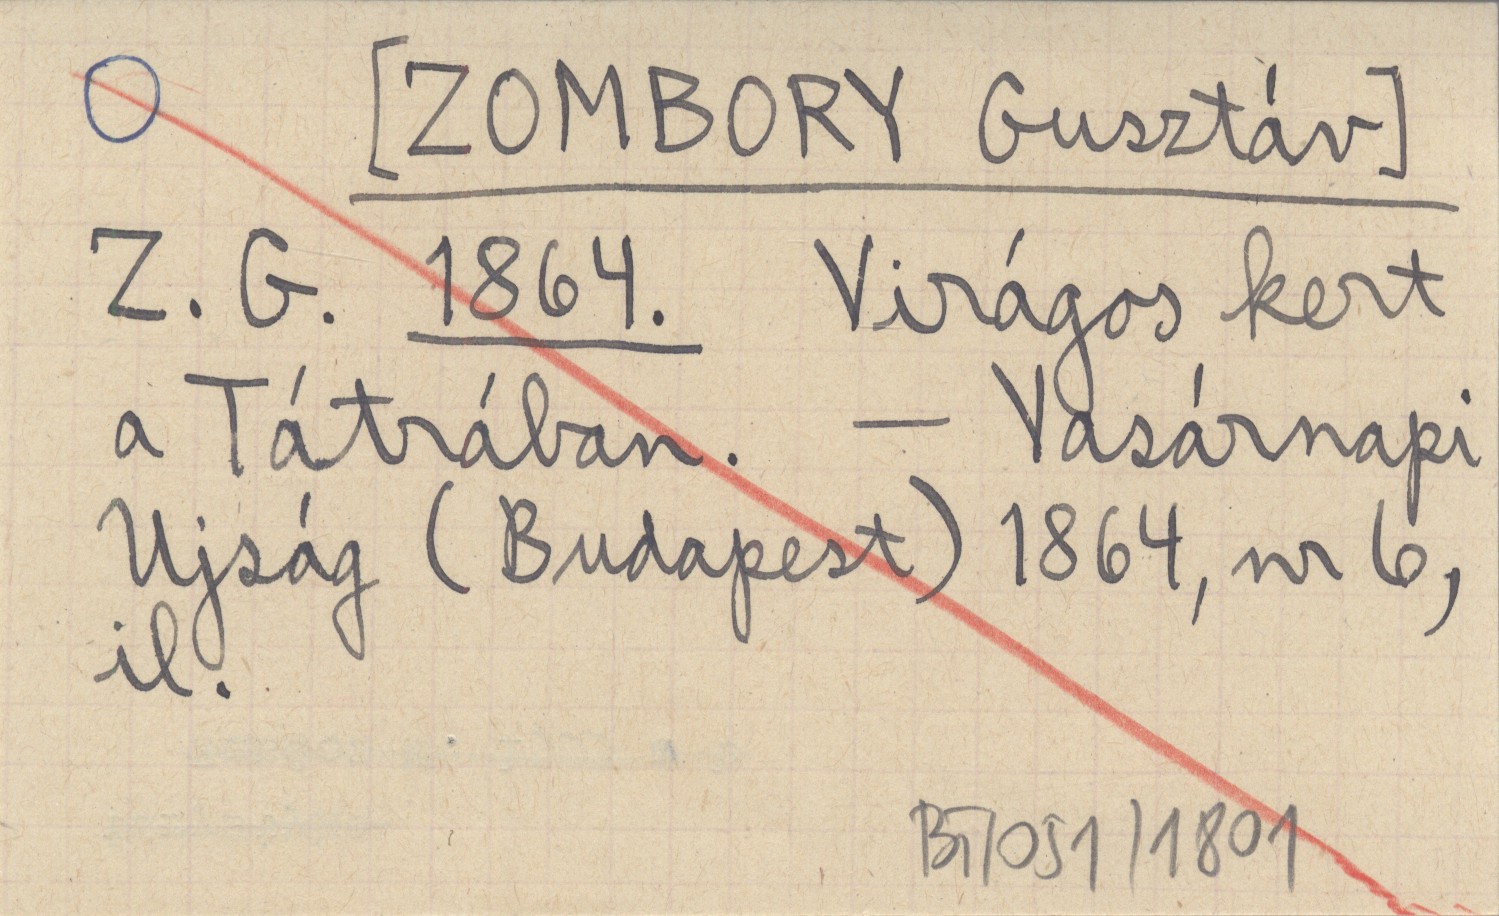 [ZOMBORY Gusztáv]
Z. G. 1864. Virágos kert
a Tátrában. — Vasárnapi
Ujság (Budapest) 1864, nr 6,
il.
BT/051/1801